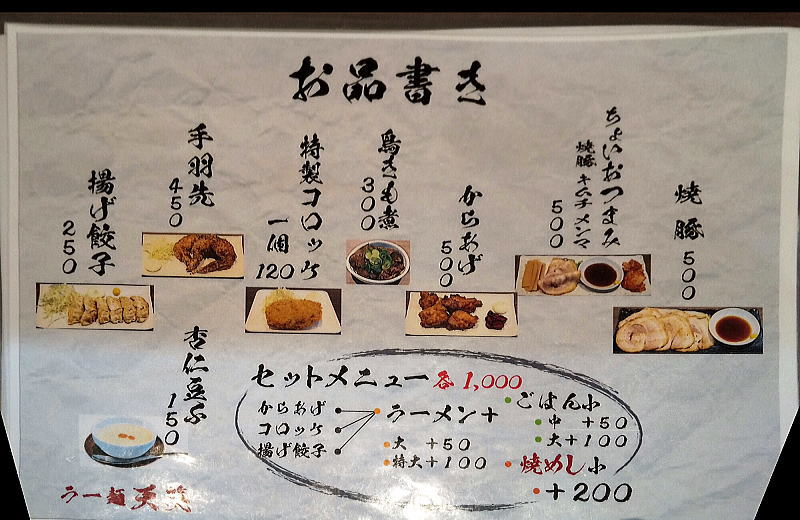 お品書き
焼豚
500
ちょいおつまみ
焼豚 キムチ メンマ
500
からあげ
500
鳥きも煮
300
特製コロッケ
一個
120
手羽先
450
揚げ餃子
250
杏仁豆ふ
150
セットメニュー各1,000
からあげ
コロッケ
揚げ餃子
ラーメン+
大 +50
特大+100
ごはん小
中 +50
大+100
焼めし小
+200
ラー麺天笑